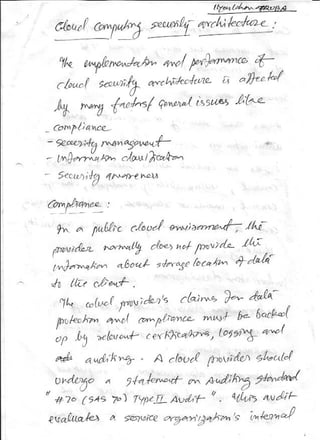 Cloud computing security architecture :
The implementation and performance of
cloud security architecture is affected
by many factors/ general issues like
- compliance
- security management
- information classification
- security awareness
Compliance :
In a public cloud environment, the
provider normally does not provide the
information about storage location of data
to the client.
The cloud provider's claims for data
protection and compliance must be backed
up by relevant certifications, logging and
auditing. A cloud provider should
undergo a statement on Auditing standard
" #70 (SAS 70) Type II Audit ". This audit
evaluates a service organization's internal